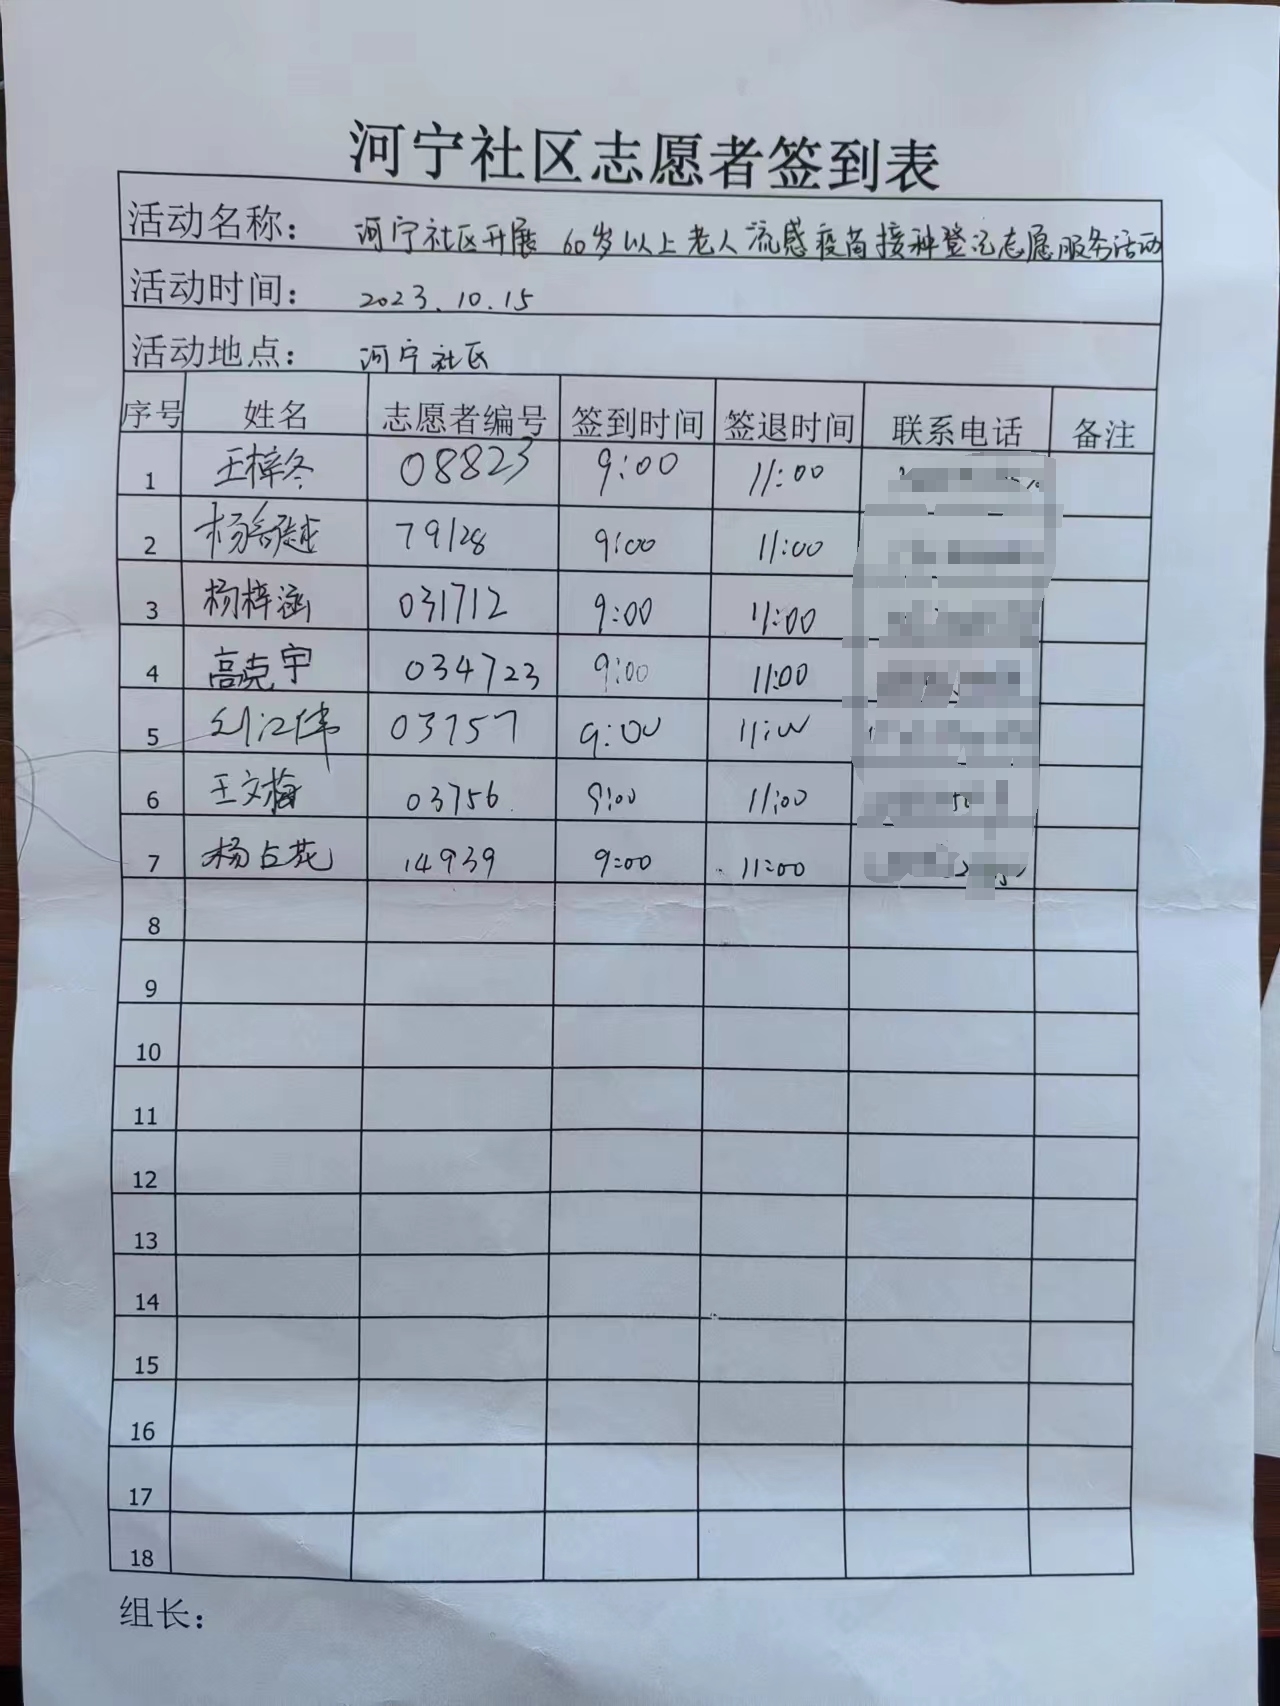 河宁社区志愿者签到表
活动名称： 河宁社区开展 60岁以上老人流感疫苗接种登记志愿服务活动
活动时间： 2023.10.15
活动地点： 河宁社区
序号 姓名 志愿者编号 签到时间 签退时间 联系电话 备注
1 王梓冬 08823 9:00 11:00
2 杨 79128 9:00 11:00
3 杨梓涵 031712 9:00 11:00
4 高克宇 034723 9:00 11:00
5 刘江伟 03757 9:00 11:00
6 王文梅 03756 9:00 11:00
7 杨占花 14939 9:00 11:00
8
9
10
11
12
13
14
15
16
17
18
组长：